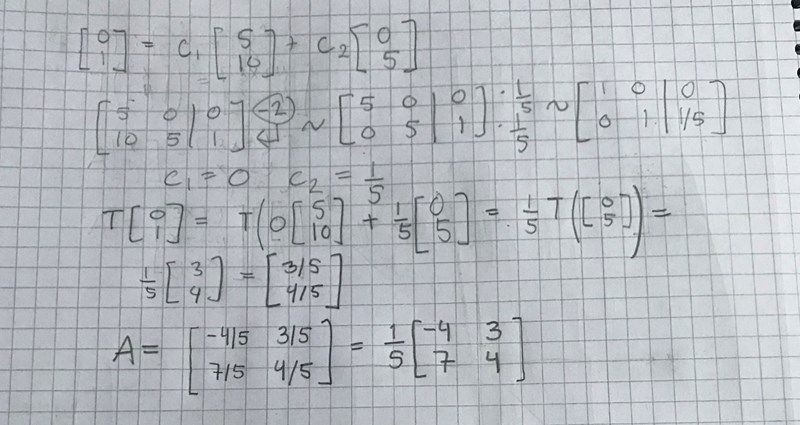 [0 1] = c₁ [5 10] + c₂ [0 5]
[5 0 | 0 10 5 | 1] (-2) ↵ ~ [5 0 | 0 0 5 | 1] · 1/5 · 1/5 ~ [1 0 | 0 0 1 | 1/5]
c₁ = 0 c₂ = 1/5
T[0 1] = T(0[5 10] + 1/5[0 5] = 1/5 T([0 5]) =
1/5 [3 4] = [3/5 4/5]
A = [-4/5 3/5 7/5 4/5] = 1/5 [-4 3 7 4]